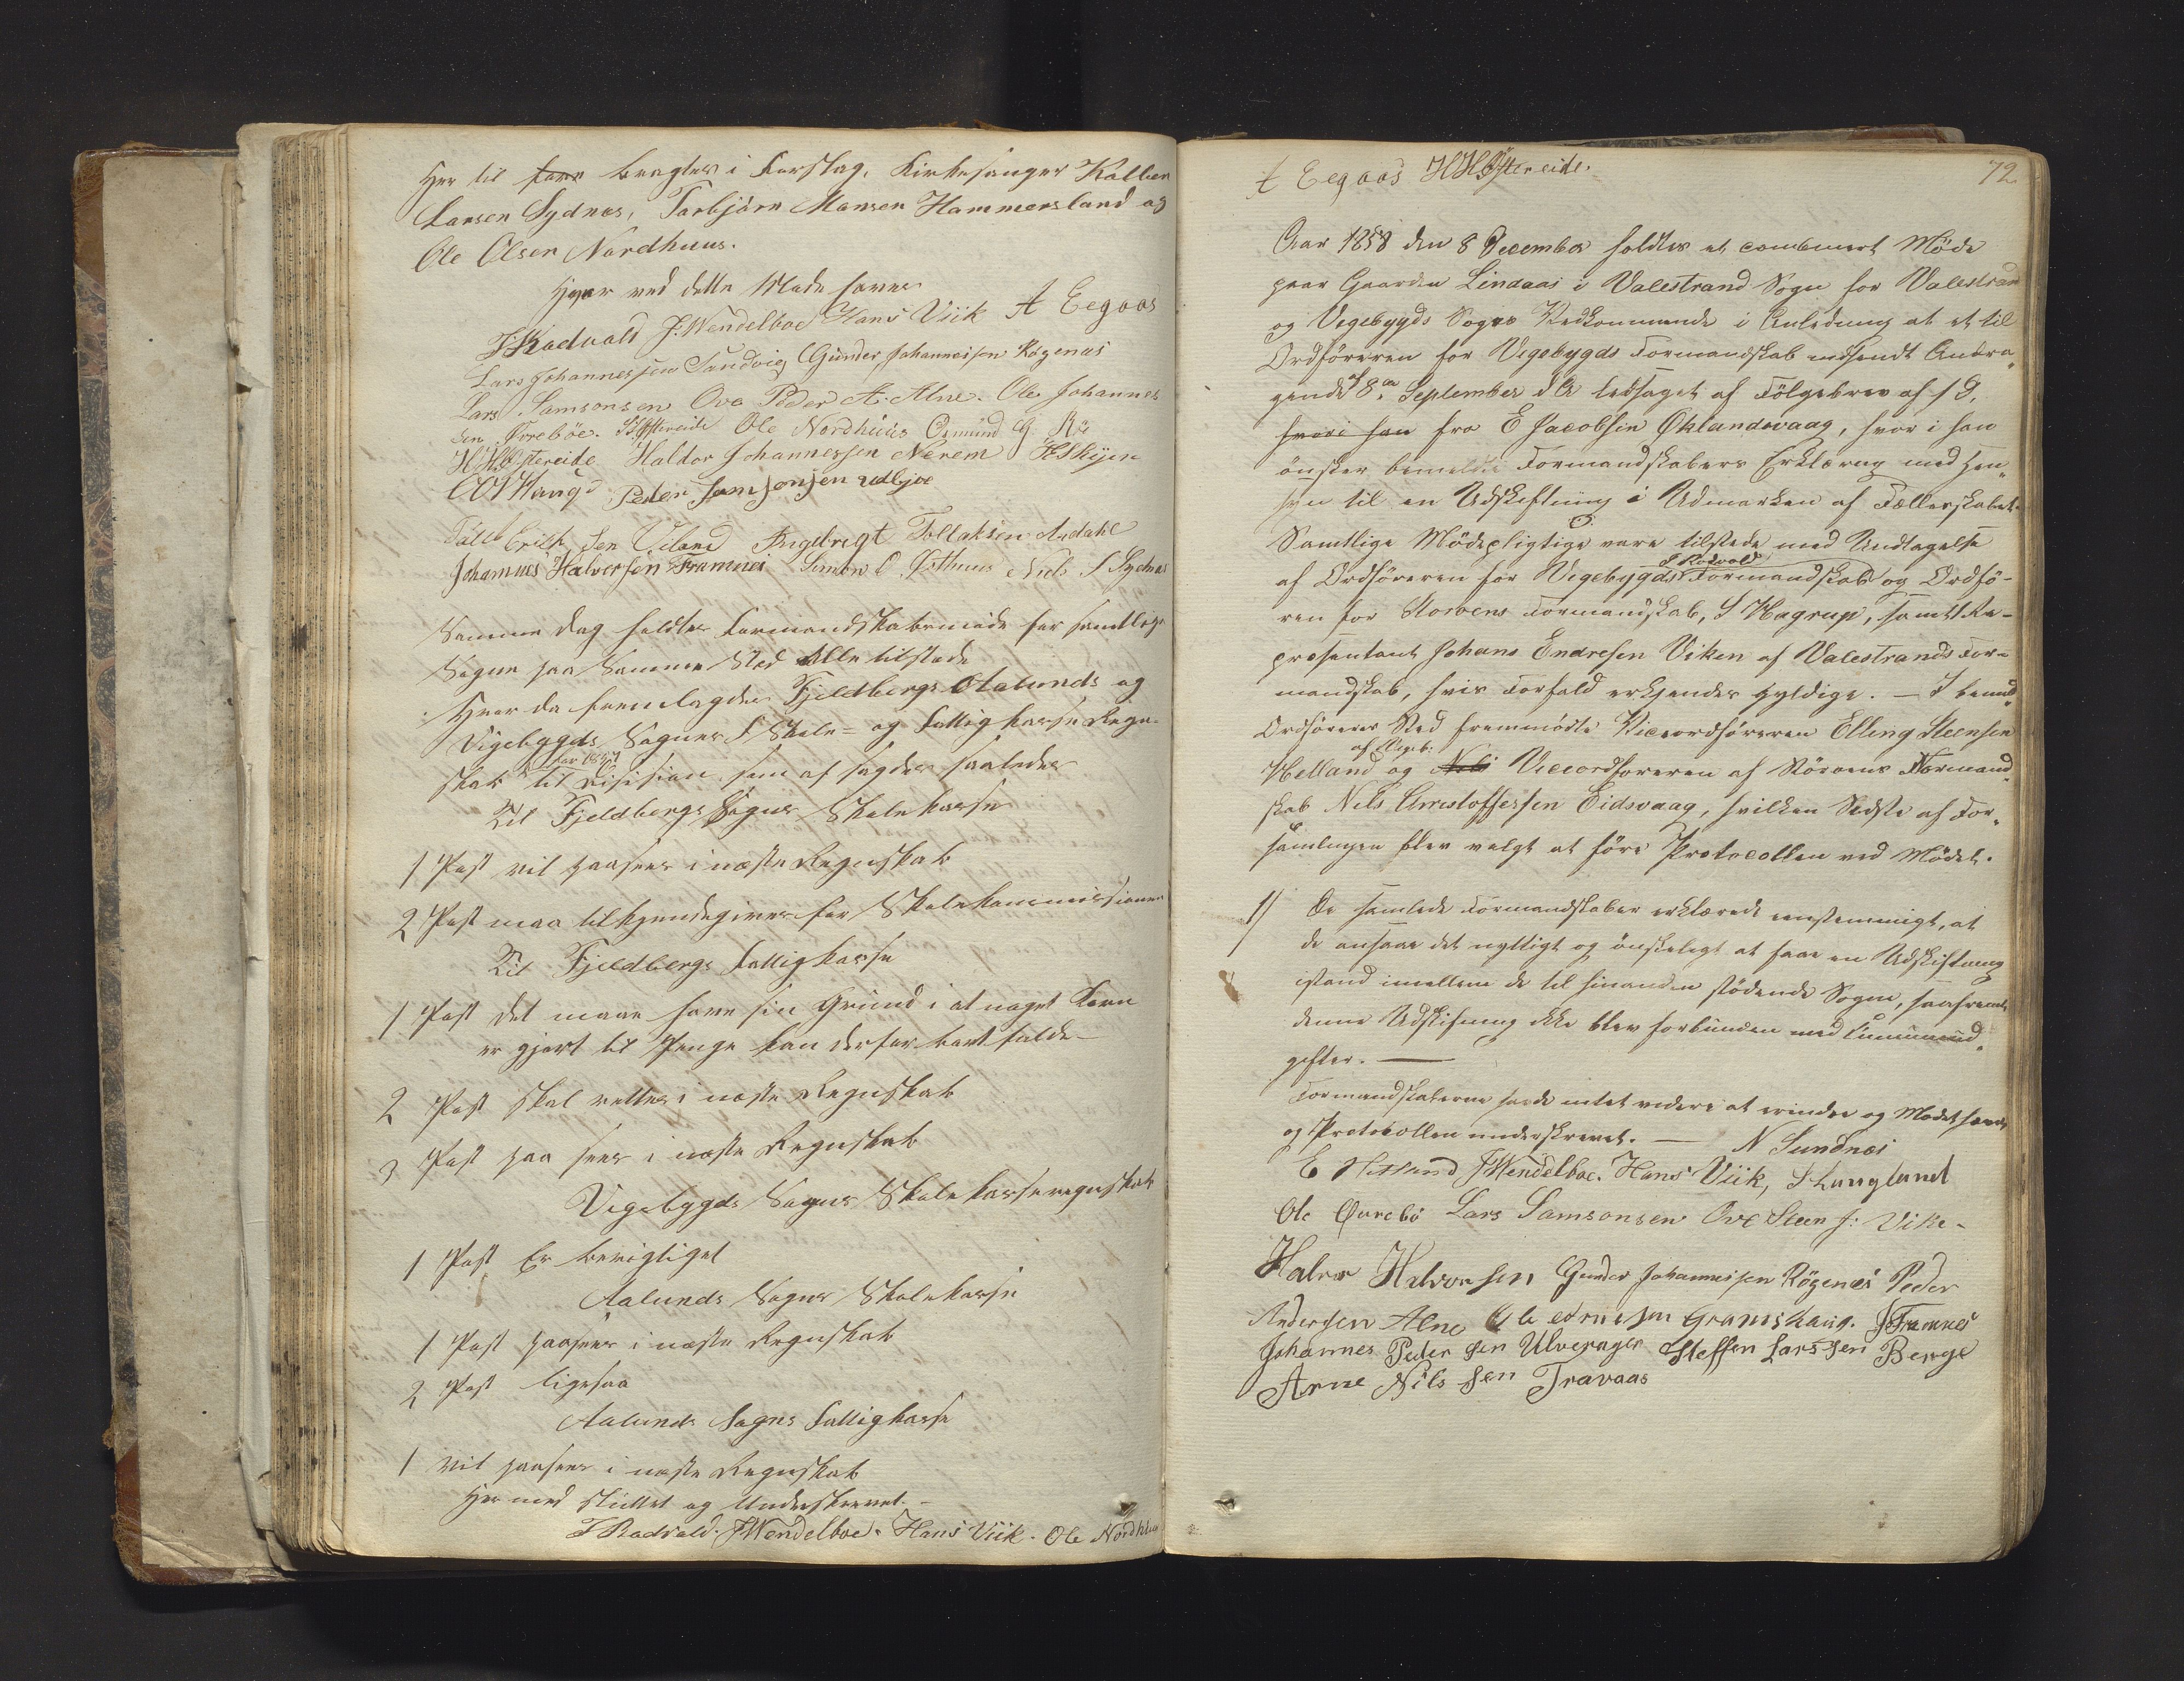 Her til bragtes i Forslag, Kirkesanger Kolben
Larsen Sydnes, Torbjörn Monsen Hammersland og
Ole Olsen Nordhuus.
Hver ved dette Møde hæves
T Rødvald J. Wendelboe Hans Viik A Eegaas
Lars Johannessen Sandvig Gunder Johannessen Røgenæs
Lars Samsonsen Ove Peder A. Alne. Ole Johannes
sen Övreböe. Östereide Ole Nordhuus Osmund G Rö
H H Östereide Haldor Johannessen Nerem
Peder Samsonsen udbjoe
Erik sen Uiland Ingebrigt Tollaksen Aadahl
Johannes Halversen Framnes Simon O Østhuus Niels S Sydnes
Samme Dag holdtes Formandskabsmöde for samtlige
Sogne paa samme Sted Alle tilstede
Hvor da fremlagdes Fjeldbergs Ølalunds og
Vigebygds Sognes Skole- og Fattigkasse Regn-
for 1857
skab til Revision som af sagdes saaledes
Til Fjeldbergs Sogns Skolekasse
1 Post vil paasees i næste Regnskab
2 Post maa tilkjendegives for Skolekommissionen
Til Fjeldbergs Fattigkasse
1 Post det maae have sin Grund i at noget Korn
er gjort til Penge kan derfor bortfalde-
2 Post skal rettes i næste Regnskab
3 Post paa sees i næste Regnskab
Vigebygds Sogns Skolekasseregnskab
1 Post Er berigtiget
Aalunds Sogns Skolekasse
1 Post paasees i næste Regnskab
2 Post ligesaa
Aalunds Sogns Fattigkasse
1 vil paasees i næste Regnskab
Her med sluttet og Underskrevet.
T Rødvald. J Wendelboe. Hans Viik. Ole Nordhuus
72
A Eegaas H H Östereide.
Aar 1858 den 8 December holdtes et combineret Möde
paa Gaarden Lindaas i Valestrand Sogn for Valestrand
og Vigebygds Sogns Vedkommende i Anledning at et til
Ordföreren for Vigebygds Formandskab indsendt Andra-
gende af 8de September d A ledsaget af Fölgebrev af s D,
hvori han fra E Jacobsen Øklandsvaag, hvor i han
önsker bemeldte Formandskabers Erklæring med Hen-
syn til en Udskiftning i Udmarken af Fællesskabet.
Samtlige Mödepligtige vare tilstede med Undtagelse
T Rödvald
af Ordföreren for Vigebygds Formandskab og Ordfö-
ren for Storoens Formandskab, S Hagrup, samt Re-
præsentant Johans Endresen Viken af Valestrands For-
mandskab, hvis Forfald erkjendes gyldige. — I bemd
Ordförers Sted fremmödte Viceordföreren Elling Steensen
af Vigeb:
Helland og Nils Viceordföreren af Störoens Formand-
skab Nils Christoffersen Eidsvaag, hvilken Sidste af For-
samlingen blev valgt at före Protocollen ved Mödet.
1) De samlede Formandskaber erklærede eenstemmigt, at
de ansaae det nyttigt og önskeligt at faae en Udskiftning
istand imellem de til hinanden stödende Sogne, saafremt
denne Udskiftning ikke blev forbunden med Communeud-
gifter. —
Formandskaberne havde intet videre at erindre og Mödet hævet
og Protocollen underskrevet. — N Sundnæs
E Helland J Wendelboe. Hans Viik, S Langland
Ole Övrebö Lars Samsonsen Ove Steen s: Vike-
Halvor Halvorsen Gunder Johannessen Rögenæs Peder
Andersen Alne Ole Grønshaug. J Framnes
Johannes Peder sen Ulverager Steffen Larssen Berge
Arne Nils sen Travaas